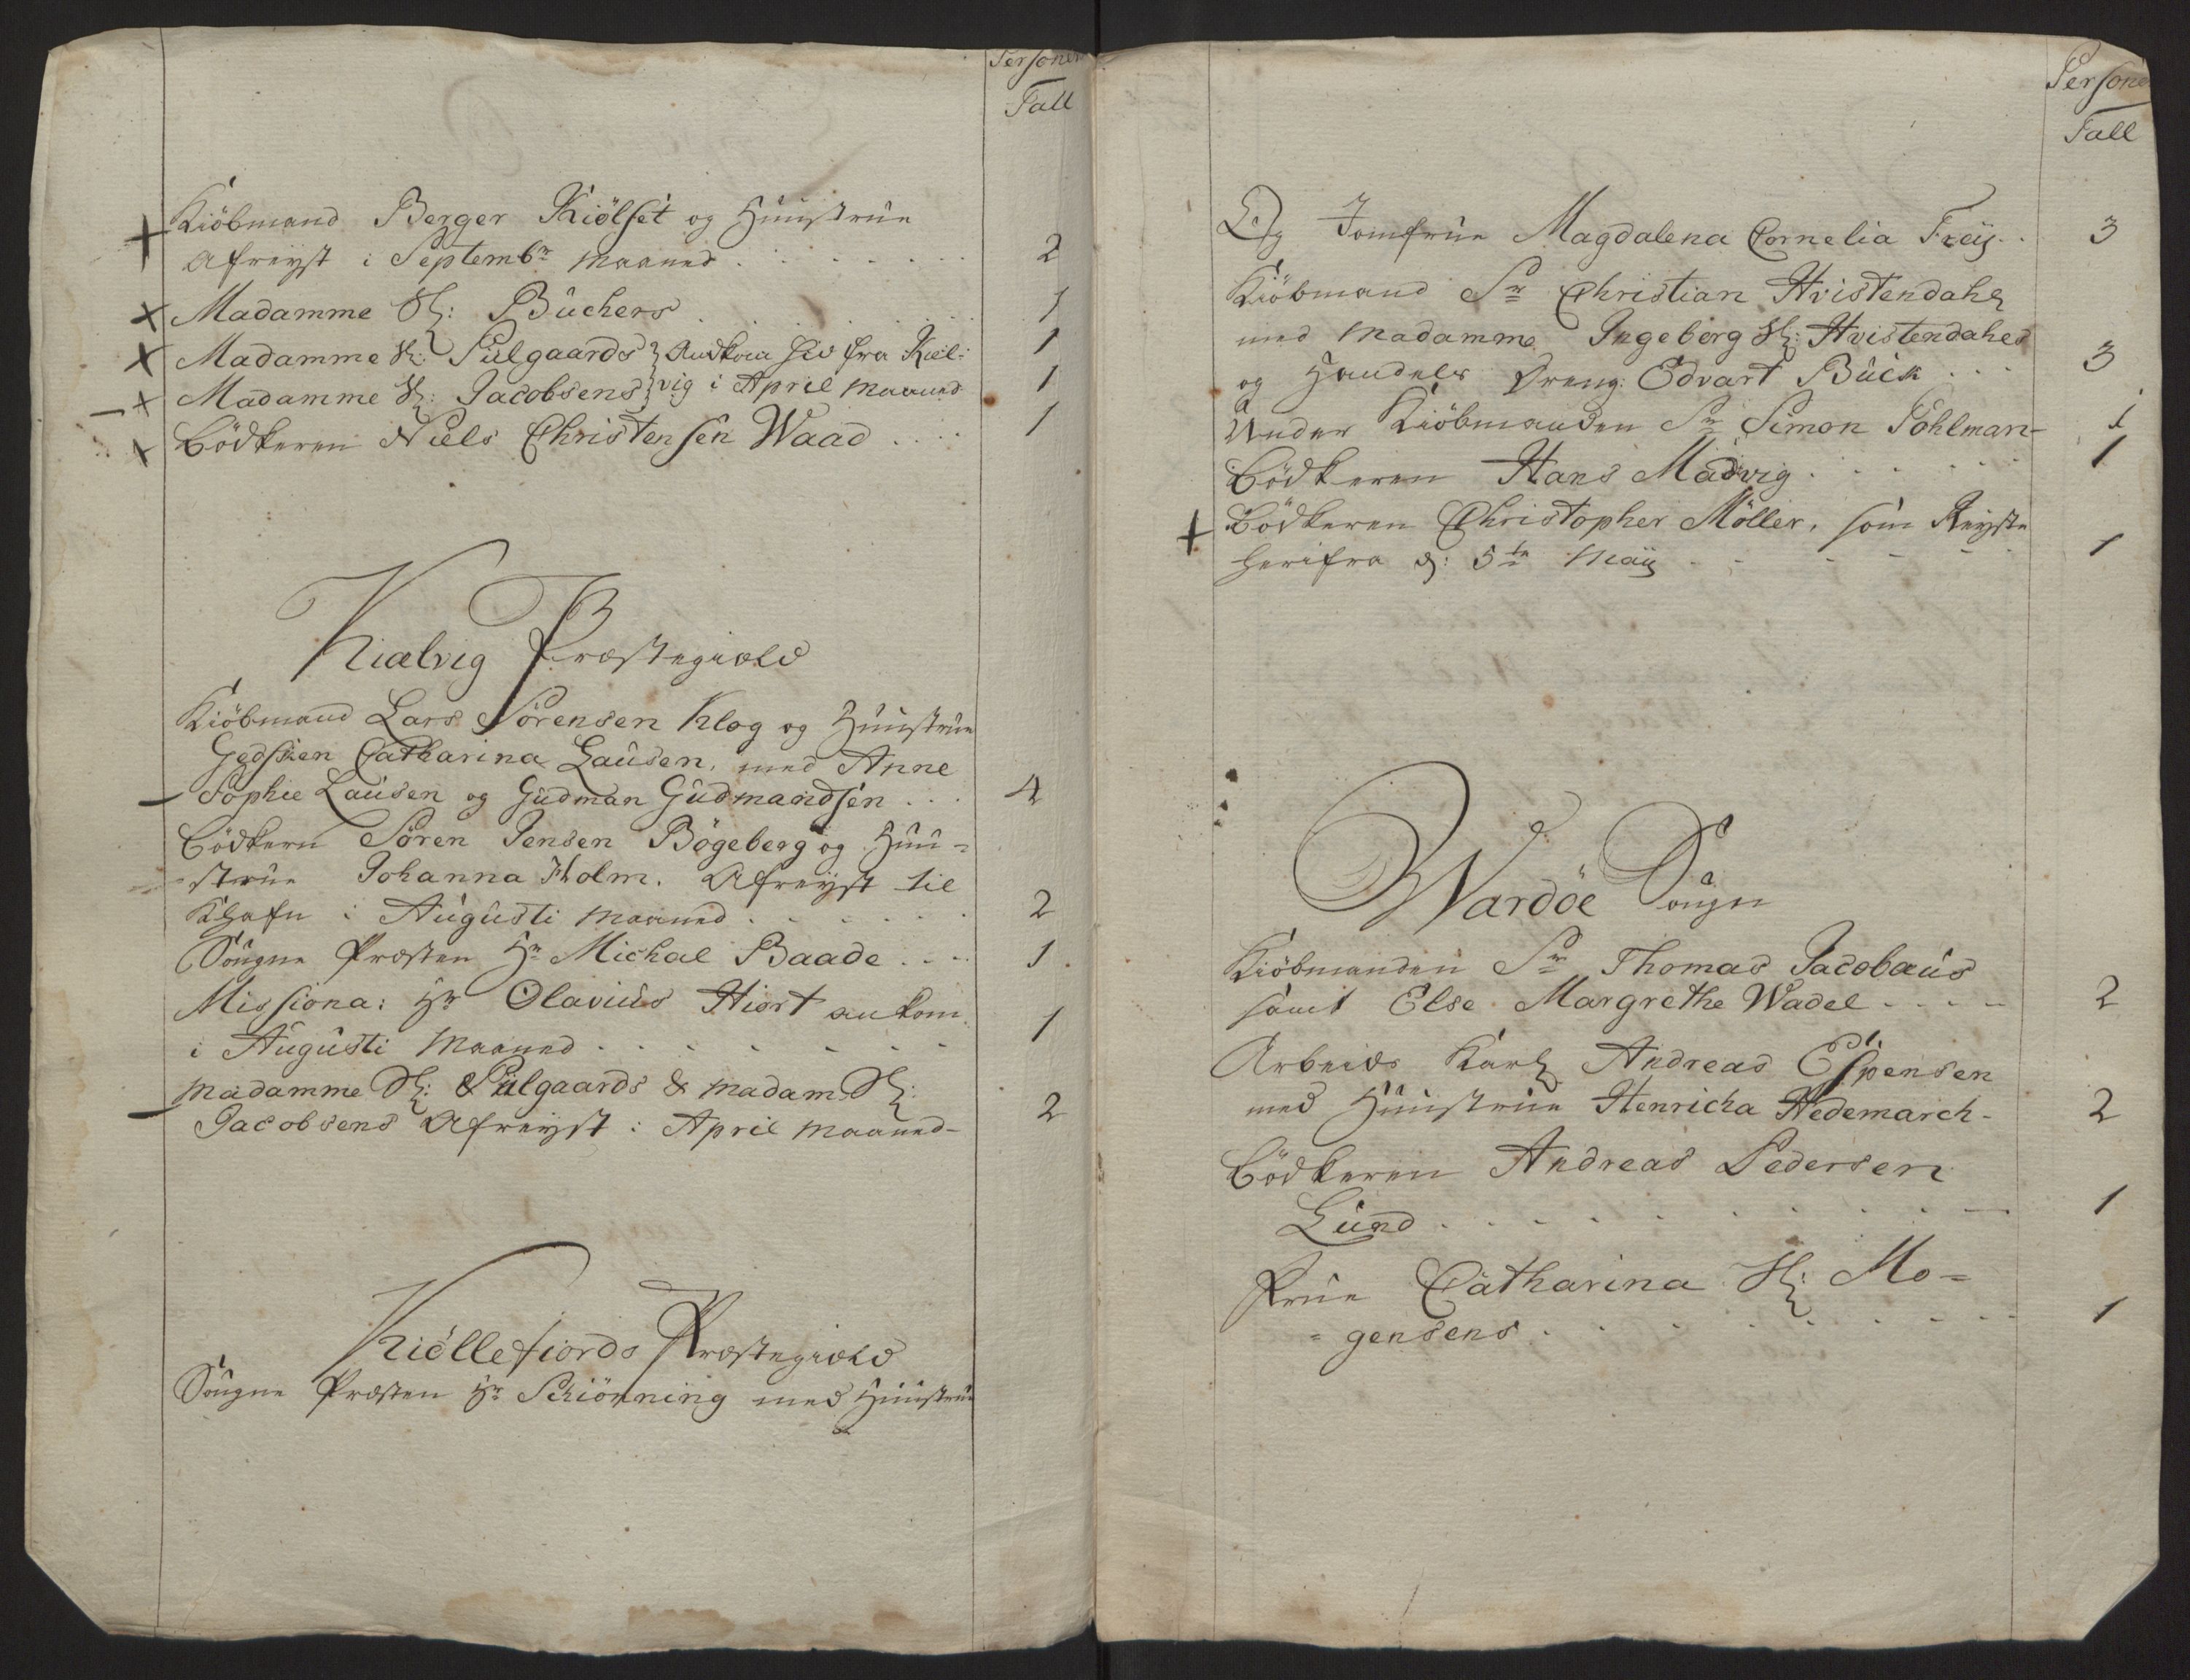 Personer
Tall
Kiöbmand Berger Kiölset og Huustrue
Afreyst i Septembr Maaned 2
Madamme Sl: Büchers 1
Madamme Sl: Pulgaards Ankom hid fra Kiel- 1
Madamme Sl: Jacobsens vig i April Maaned 1
Bödkeren Niels Christensen Waad 1
Kielvig Præstegiæld
Kiöbmand Lars Sörensen Klog og Huustrue
Catharina Lausen, med Anne
Sophie Lausen og Gudman Gudmandsen 4
Bödkern Sören Jensen Bögeberg og Huu-
strue Johanna Holm. Afreyst til
Khafn i Augusti Maaned 2
Sougne Præsten Hr Michal Baade 1
Missiona: Hr Olavius Hiort ankom
i Augusti Maaned 1
Madamme Sl: Pulgaards & Madam Sl:
Jacobsens Afreyst i April Maaned 2
Kiöllefiords Præstegiæld
Sougne Præsten Hr Schiönning med Huustrue
Personer
Tall
Og Jomfrue Magdalena Cornelia Freÿ 3
Kiöbmand Sr Christian Hvistendahl
med Madamme Ingeborg Sl: Hvistendahls
og Handels Dreng: Edvart Buck 3
Under Kiöbmanden Sr Simon Pohlman 1
Bödkeren Hans Madvig 1
Bödkeren Christopher Möller, som Reyste
herifra d: 5te Maÿ 1
Wardöe Sougn
Kiöbmanden Sr Thomas Jacobæus
samt Else Margrethe Wadel 2
Arbeids Karl Andreas Espensen
med Huustrue Henricha Hedemarch 2
Bödkeren Andreas Pedersen
Lund 1
Frue Catharina Sl: Mo-
gensens 1